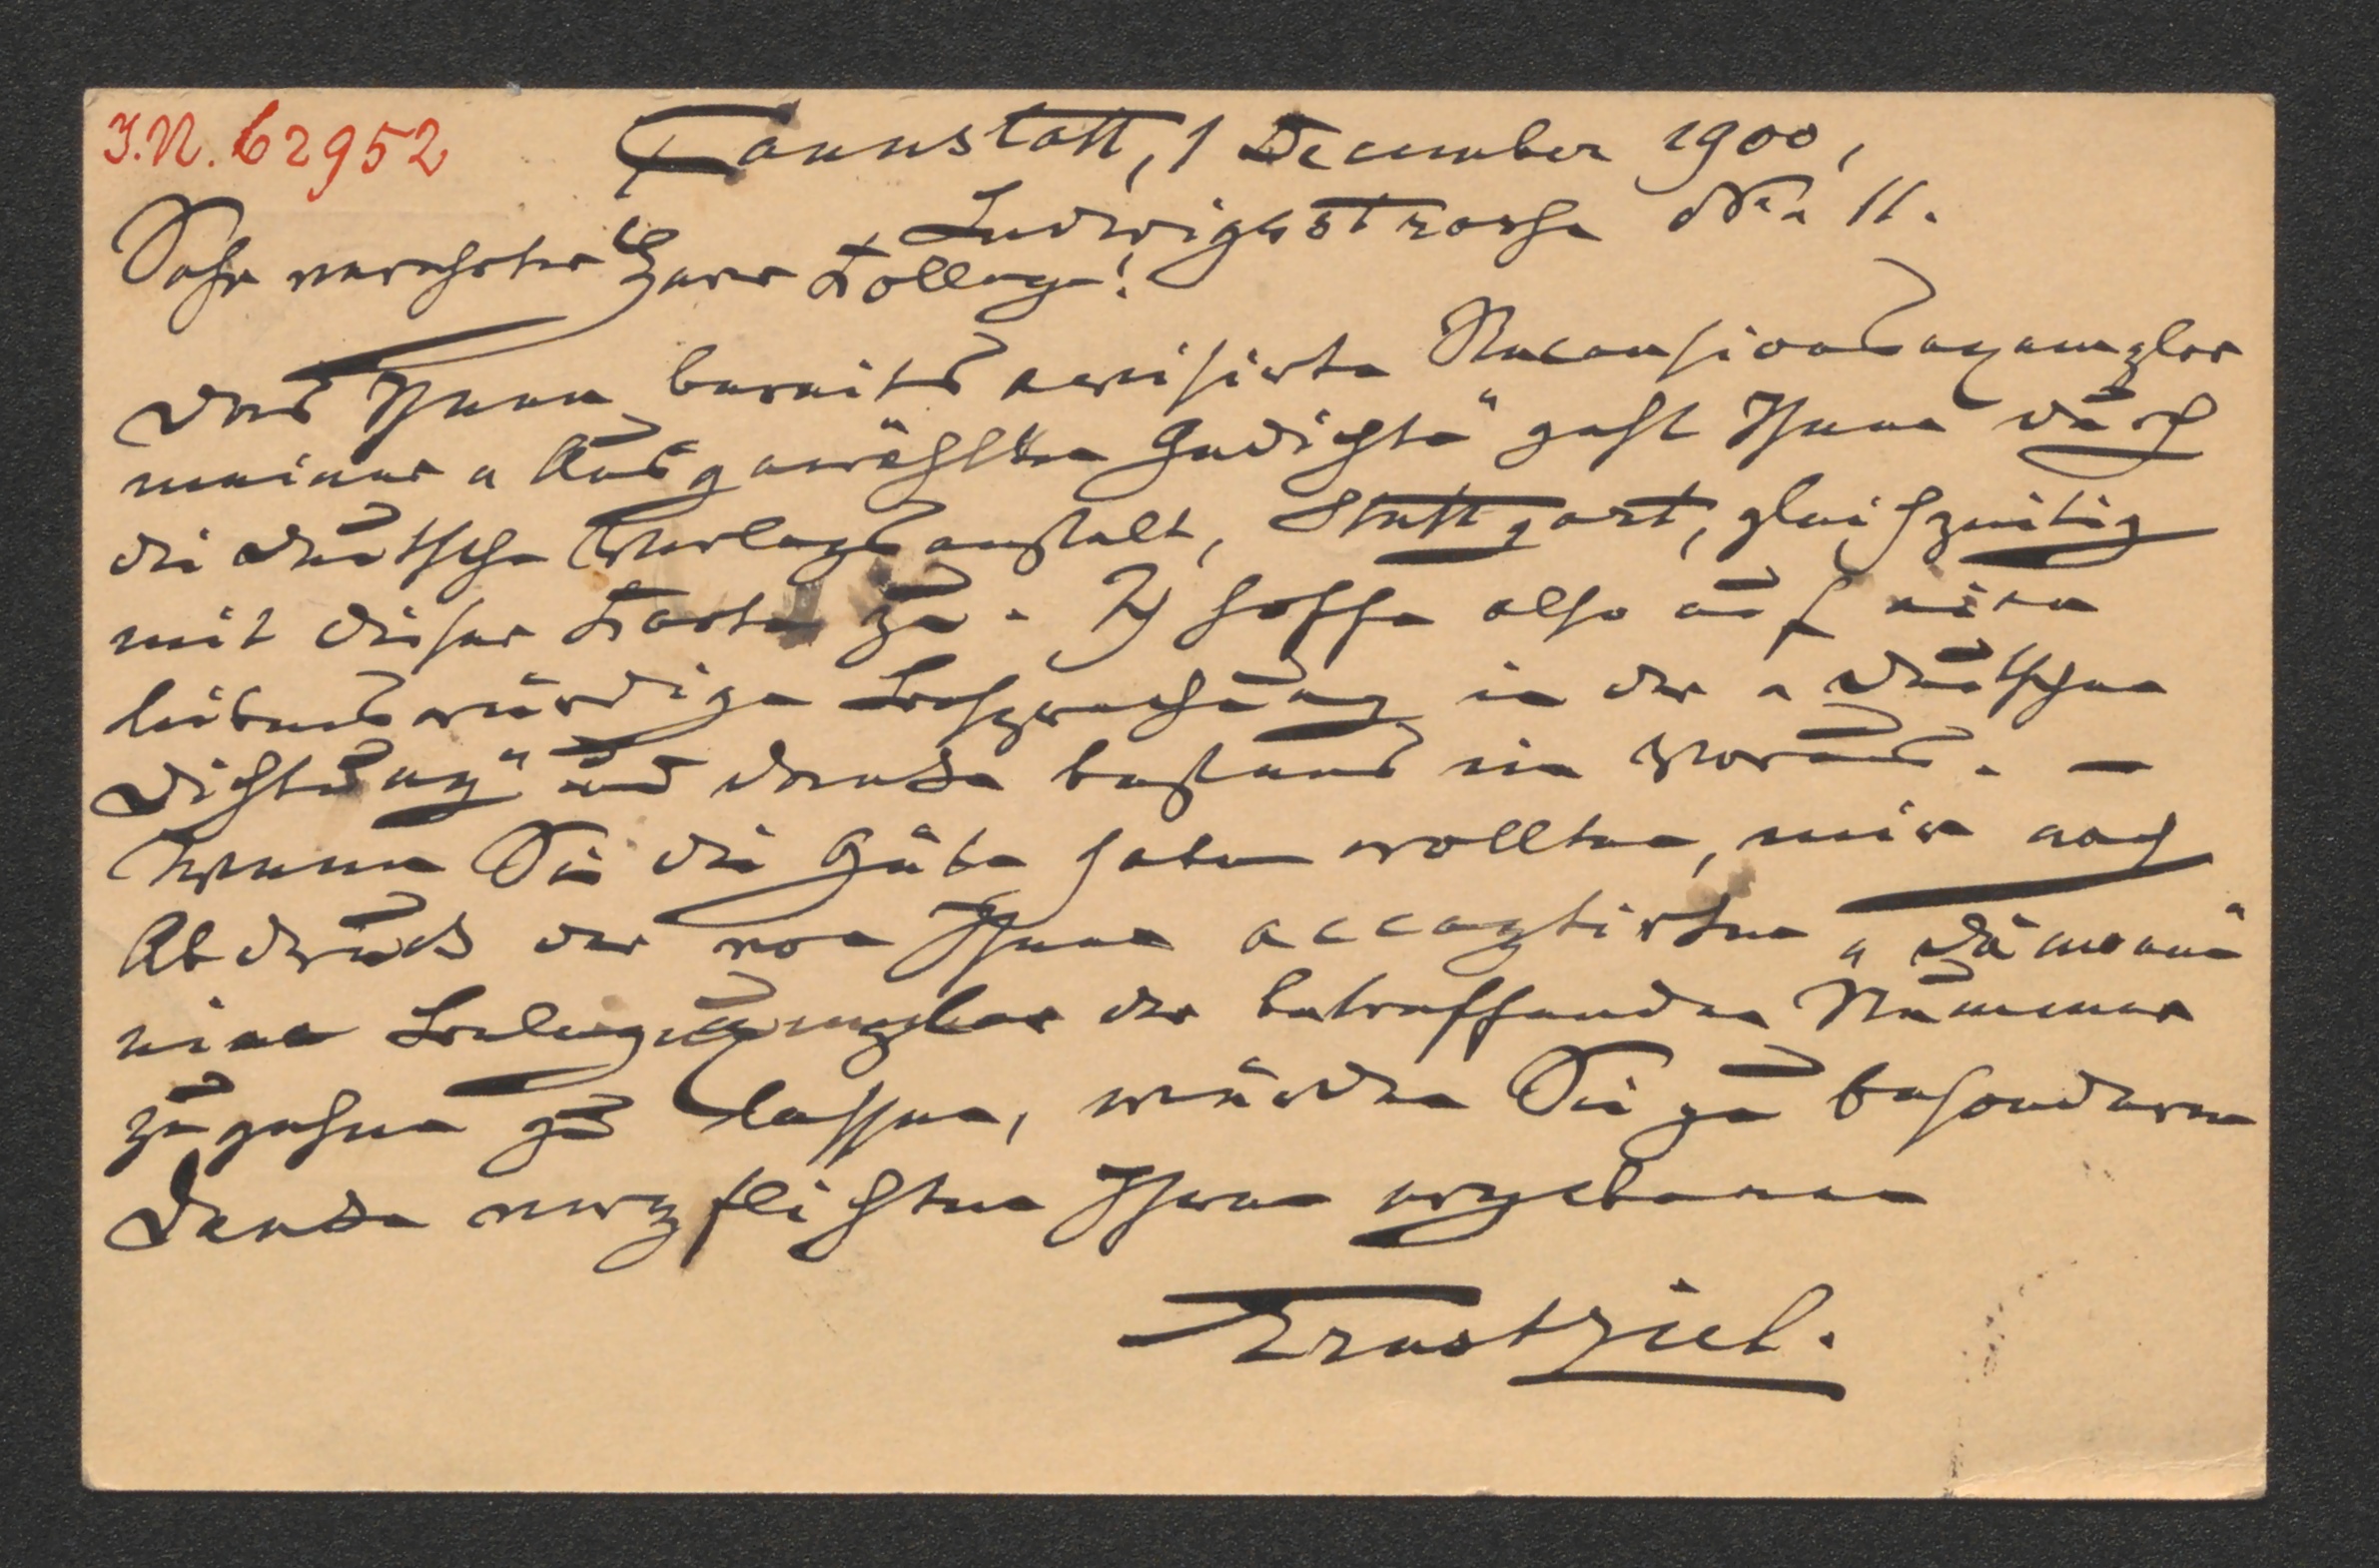 J.N. 62952
Cannstatt, 1 December 1900,
Ludwigsstrasse No. 11.
Sehr verehrter Herr College!
Das Ihnen bereits avisirte Recensionsexemplar
meiner „Ausgewählten Gedichte" geht Ihnen durch
die Deutsche Verlagsanstalt, Stuttgart, gleichzeitig
mit dieser Karte zu. Ich hoffe also auf eine
liebenswürdige Besprechung in der „Deutschen
Dichtung" und danke bestens im Voraus. —
Wenn Sie die Güte haben wollten, mir nach
Abdruck der von Ihnen acceptirten „Dämonen"
eine Belegexemplar der betreffenden Nummer
zugehen zu lassen, würden Sie zu besonderem
Danke verpflichten Ihren ergebenen
Ernst Ziel.